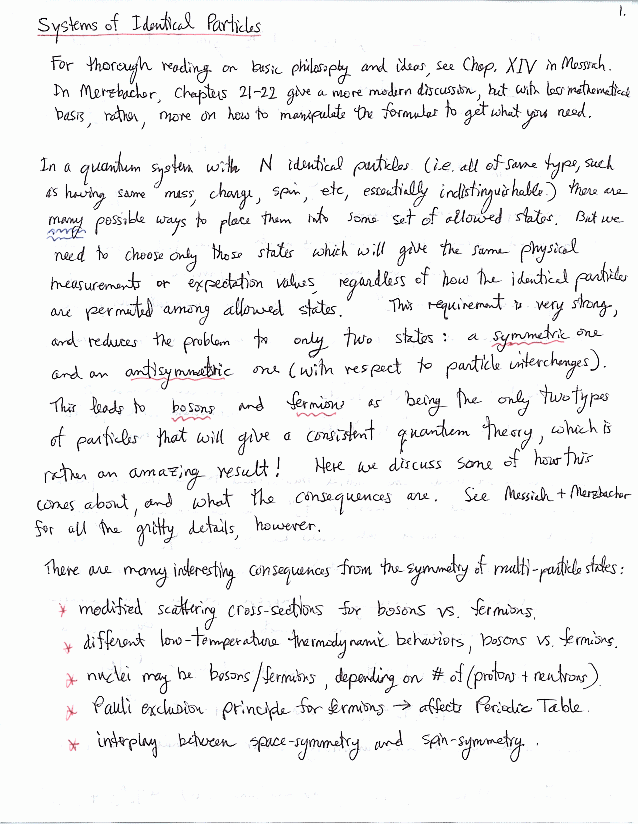 1.
Systems of Identical Particles
For thorough reading on basic philosophy and ideas, see Chap. XIV in Messiah.
In Merzbacher, Chapters 21-22 give a more modern discussion, but with less mathematical
basis, rather, more on how to manipulate the formulas to get what you need.
In a quantum system with N identical particles (i.e. all of same type, such
as having same mass, charge, spin, etc, essentially indistinguishable) there are
many possible ways to place them into some set of allowed states. But we
need to choose only those states which will give the same physical
measurements or expectation values, regardless of how the identical particles
are permuted among allowed states. This requirement is very strong,
and reduces the problem to only two states: a symmetric one
and an antisymmetric one (with respect to particle interchanges).
This leads to bosons and fermions as being the only two types
of particles that will give a consistent quantum theory, which is
rather an amazing result! Here we discuss some of how this
comes about, and what the consequences are. See Messiah + Merzbacher
for all the gritty details, however.
There are many interesting consequences from the symmetry of multi-particle states:
* modified scattering cross-sections for bosons vs. fermions.
* different low-temperature thermodynamic behaviors, bosons vs. fermions.
* nuclei may be bosons/fermions, depending on # of (protons + neutrons).
* Pauli exclusion principle for fermions → affects Periodic Table.
* interplay between space-symmetry and spin-symmetry.